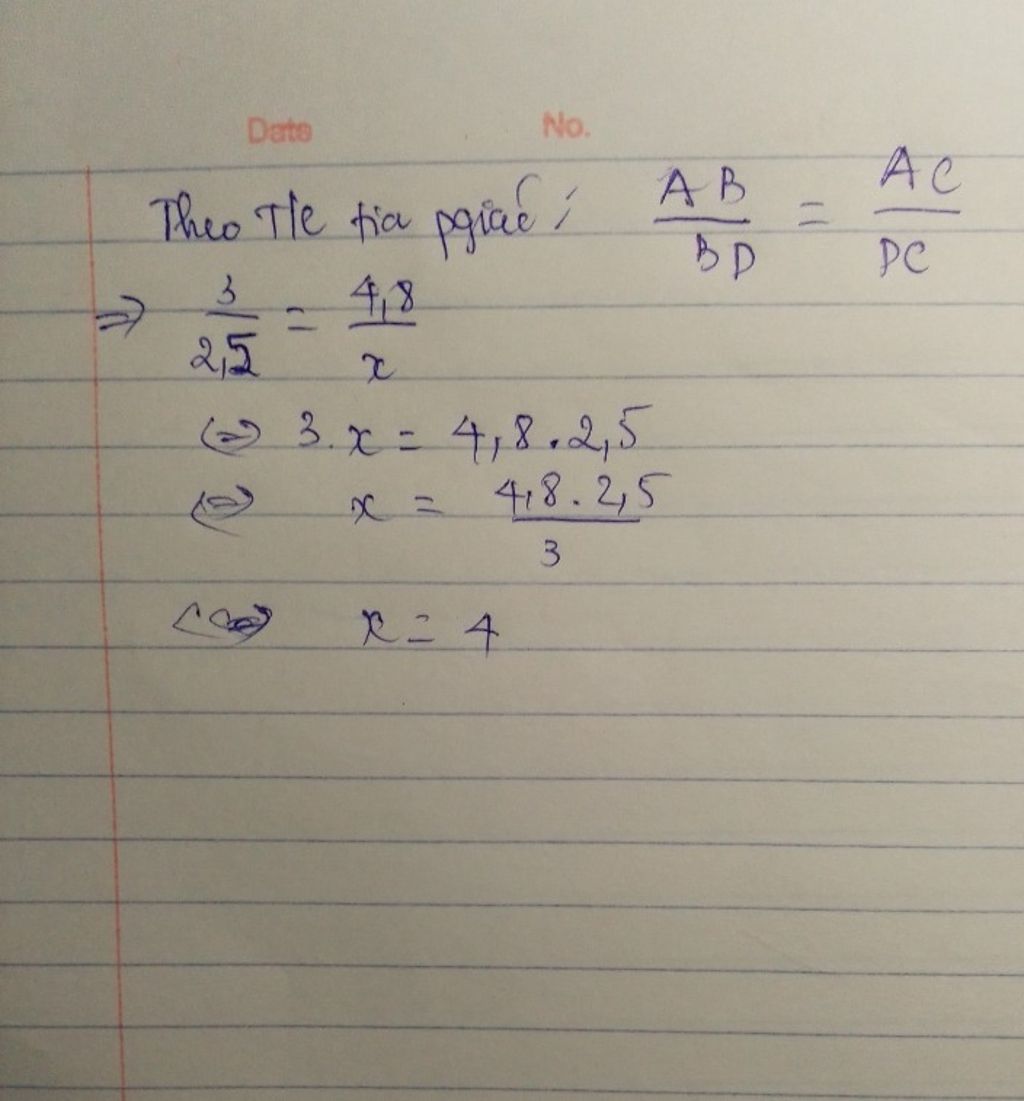 Date No.
Theo T/c tia pgiác: AB/BD = AC/DC
⇒ 3/2,5 = 4,8/x
⇔ 3.x = 4,8.2,5
⇔ x = 4,8.2,5/3
⇔ x = 4